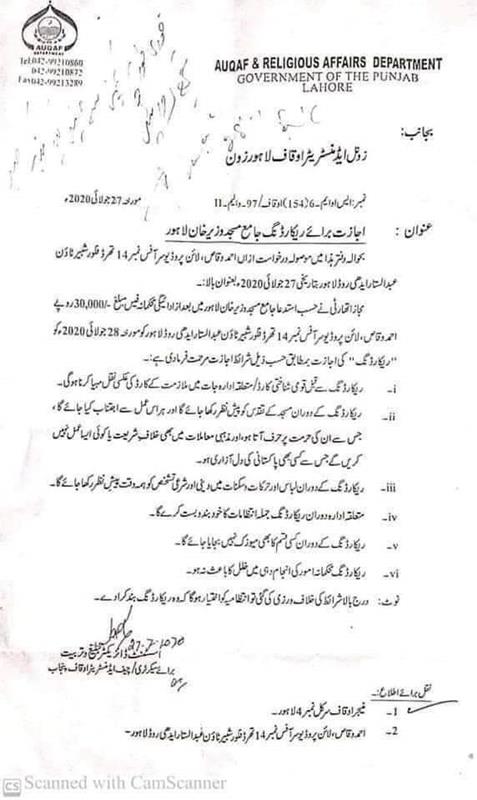 AUQAF
DEPARTMENT
Tel:042-99210860
042-99210872
Fax:042-99213289
AUQAF & RELIGIOUS AFFAIRS DEPARTMENT
GOVERNMENT OF THE PUNJAB
LAHORE
بجانب:
زونل ایڈمنسٹریٹر اوقاف لاہور زون
نمبر: ایس او ایم۔6(154) اوقاف/97۔وایم۔II مورخہ 27 جولائی 2020ء
عنوان: اجازت برائے ریکارڈنگ جامع مسجد وزیر خان لاہور
بحوالہ دفتر ہذا میں موصولہ درخواست ازاں احمد وقاص، لائن پروڈیوسر آفس نمبر 14 تھرڈ فلور شبیر ٹاؤن
عبدالستار ایدھی روڈ لاہور بتاریخ 27 جولائی 2020ء بعنوان بالا:۔
مجاز اتھارٹی نے حسب استدعا جامع مسجد وزیر خان لاہور میں بعد از ادائیگی محکمانہ فیس مبلغ -/30,000 روپے
احمد وقاص، لائن پروڈیوسر آفس نمبر 14 تھرڈ فلور شبیر ٹاؤن عبدالستار ایدھی روڈ لاہور کو مورخہ 28 جولائی 2020ء کو
"ریکارڈنگ" کی اجازت بمطابق حسب ذیل شرائط اجازت مرحمت فرما دی ہے:۔
i۔ ریکارڈنگ سے قبل قومی شناختی کارڈ/متعلقہ ادارہ جات میں ملازمت کے کارڈ کی عکسی نقل مہیا کرنا ہوگی۔
ii۔ ریکارڈنگ کے دوران مسجد کے تقدس کو پیش نظر رکھا جائے گا اور ہر اس عمل سے اجتناب کیا جائے گا،
جس سے ان کی حرمت پر حرف آتا ہو، اور مذہبی معاملات میں بھی خلاف شریعت یا کوئی ایسا عمل نہیں
کریں گے جس سے کسی بھی پاکستانی کی دل آزاری ہو۔
iii۔ ریکارڈنگ کے دوران لباس اور حرکات و سکنات میں دینی اور شرعی تشخص کو ہمہ وقت پیش نظر رکھا جائے گا۔
iv۔ متعلقہ ادارہ دوران ریکارڈنگ جملہ انتظامات کا خود بندوبست کرے گا۔
v۔ ریکارڈنگ کے دوران کسی قسم کا بھی میوزک نہیں بجایا جائے گا۔
vi۔ ریکارڈنگ محکمانہ امور کی انجام دہی میں خلل کا باعث نہ ہو۔
نوٹ: درج بالا شرائط کی خلاف ورزی کی گئی تو انتظامیہ کو اختیار ہوگا کہ وہ ریکارڈنگ بند کرا دے۔
27.7.2020
اسسٹنٹ ڈائریکٹر تبلیغ و تربیت
برائے سیکرٹری/چیف ایڈمنسٹریٹر اوقاف پنجاب
نقل برائے اطلاع:۔
1۔ منیجر اوقاف سرکل نمبر 4 لاہور۔
2۔ احمد وقاص، لائن پروڈیوسر آفس نمبر 14 تھرڈ فلور شبیر ٹاؤن عبدالستار ایدھی روڈ لاہور۔
CS Scanned with CamScanner